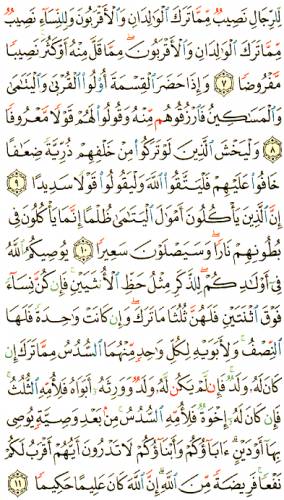 لِّلرِّجَالِ نَصِيبٌ مِّمَّا تَرَكَ ٱلْوَٰلِدَانِ وَٱلْأَقْرَبُونَ وَلِلنِّسَآءِ نَصِيبٌ
مِّمَّا تَرَكَ ٱلْوَٰلِدَانِ وَٱلْأَقْرَبُونَ مِمَّا قَلَّ مِنْهُ أَوْ كَثُرَ نَصِيبًا
مَّفْرُوضًا ٧ وَإِذَا حَضَرَ ٱلْقِسْمَةَ أُو۟لُوا۟ ٱلْقُرْبَىٰ وَٱلْيَتَٰمَىٰ
وَٱلْمَسَٰكِينُ فَٱرْزُقُوهُم مِّنْهُ وَقُولُوا۟ لَهُمْ قَوْلًا مَّعْرُوفًا
٨ وَلْيَخْشَ ٱلَّذِينَ لَوْ تَرَكُوا۟ مِنْ خَلْفِهِمْ ذُرِّيَّةً ضِعَٰفًا
خَافُوا۟ عَلَيْهِمْ فَلْيَتَّقُوا۟ ٱللَّهَ وَلْيَقُولُوا۟ قَوْلًا سَدِيدًا ٩
إِنَّ ٱلَّذِينَ يَأْكُلُونَ أَمْوَٰلَ ٱلْيَتَٰمَىٰ ظُلْمًا إِنَّمَا يَأْكُلُونَ فِى
بُطُونِهِمْ نَارًا ۖ وَسَيَصْلَوْنَ سَعِيرًا ١٠ يُوصِيكُمُ ٱللَّهُ
فِىٓ أَوْلَٰدِكُمْ ۖ لِلذَّكَرِ مِثْلُ حَظِّ ٱلْأُنثَيَيْنِ ۚ فَإِن كُنَّ نِسَآءً
فَوْقَ ٱثْنَتَيْنِ فَلَهُنَّ ثُلُثَا مَا تَرَكَ ۖ وَإِن كَانَتْ وَٰحِدَةً فَلَهَا
ٱلنِّصْفُ ۚ وَلِأَبَوَيْهِ لِكُلِّ وَٰحِدٍ مِّنْهُمَا ٱلسُّدُسُ مِمَّا تَرَكَ إِن
كَانَ لَهُۥ وَلَدٌ ۚ فَإِن لَّمْ يَكُن لَّهُۥ وَلَدٌ وَوَرِثَهُۥٓ أَبَوَاهُ فَلِأُمِّهِ ٱلثُّلُثُ ۚ
فَإِن كَانَ لَهُۥٓ إِخْوَةٌ فَلِأُمِّهِ ٱلسُّدُسُ ۚ مِنۢ بَعْدِ وَصِيَّةٍ يُوصِى
بِهَآ أَوْ دَيْنٍ ۗ ءَابَآؤُكُمْ وَأَبْنَآؤُكُمْ لَا تَدْرُونَ أَيُّهُمْ أَقْرَبُ لَكُمْ
نَفْعًا ۚ فَرِيضَةً مِّنَ ٱللَّهِ ۗ إِنَّ ٱللَّهَ كَانَ عَلِيمًا حَكِيمًا ١١